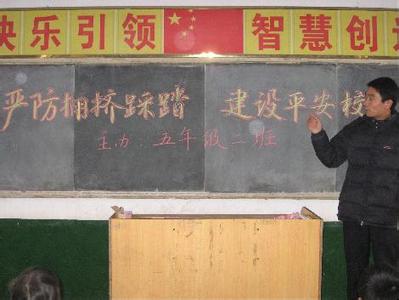 快乐引领 智慧创造
严防拥挤踩踏 建设平安校
主办:五年级二班